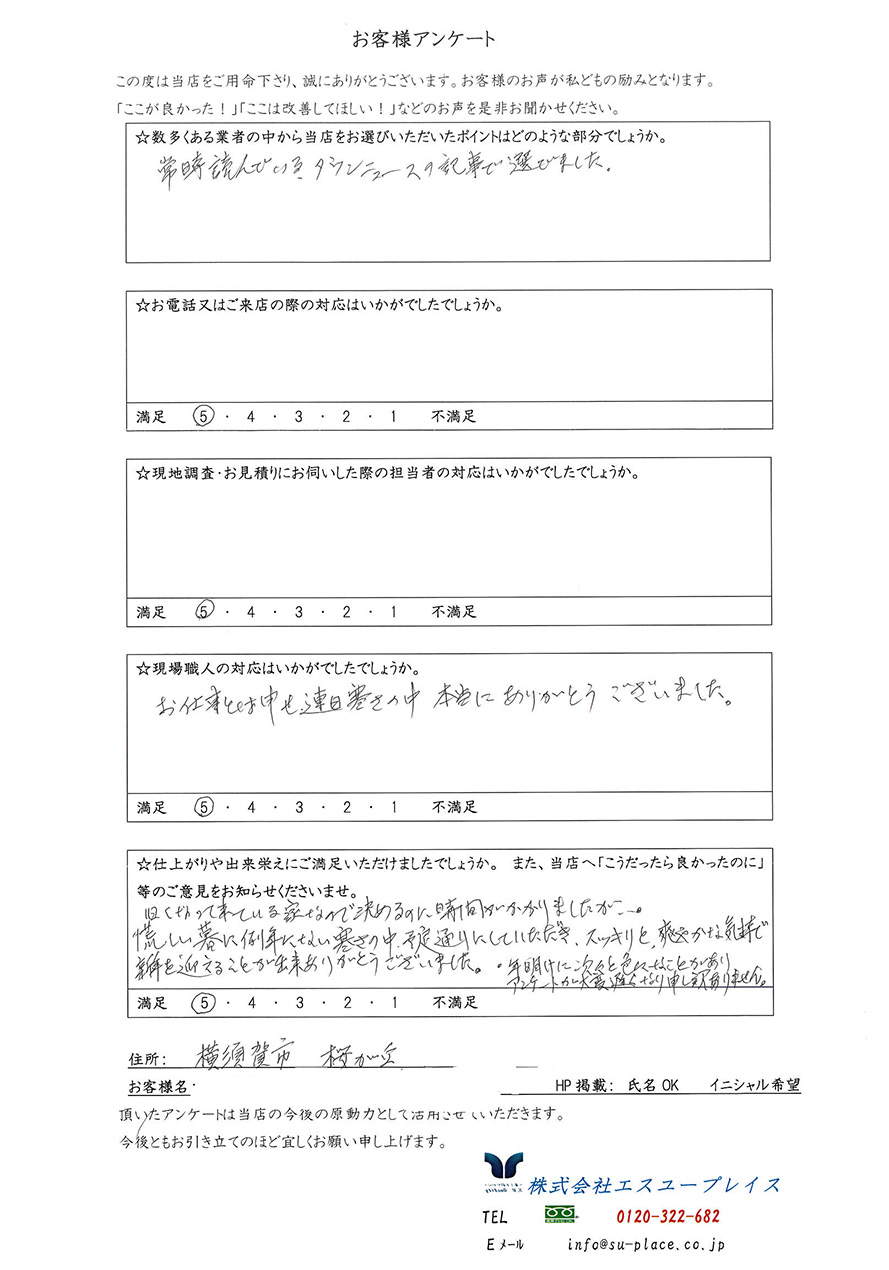 お客様アンケート
この度は当店をご用命下さり、誠にありがとうございます。お客様のお声が私どもの励みとなります。
「ここが良かった！」「ここは改善してほしい！」などのお声を是非お聞かせください。
☆数多くある業者の中から当店をお選びいただいたポイントはどのような部分でしょうか。
常時読んでいるタウンニュースの記事で選びました。
☆お電話又はご来店の際の対応はいかがでしたでしょうか。
満足 5 ・ 4 ・ 3 ・ 2 ・ 1 不満足
☆現地調査・お見積りにお伺いした際の担当者の対応はいかがでしたでしょうか。
満足 5 ・ 4 ・ 3 ・ 2 ・ 1 不満足
☆現場職人の対応はいかがでしたでしょうか。
お仕事とは申せ連日寒さの中 本当に ありがとう ございました。
満足 5 ・ 4 ・ 3 ・ 2 ・ 1 不満足
☆仕上がりや出来栄えにご満足いただけましたでしょうか。 また、当店へ「こうだったら良かったのに」
等のご意見をお知らせくださいませ。
古くなって来ている家なので決めるのに時間がかかりましたが…。
慌しい暮に例年にない寒さの中、予定通りにしていただき、スッキリと、爽やかな気持で
新年を迎えることが出来ありがとうございました。
・年明けに次々と色々なことがあり
アンケートが大変遅くなり申し訳ありません。
満足 5 ・ 4 ・ 3 ・ 2 ・ 1 不満足
住所： 横須賀市 桜が丘
お客様名 HP掲載： 氏名OK イニシャル希望
頂いたアンケートは当店の今後の原動力として活用させていただきます。
今後ともお引き立てのほど宜しくお願い申し上げます。
株式会社エスユープレイス
TEL 0120-322-682
Eメール info@su-place.co.jp